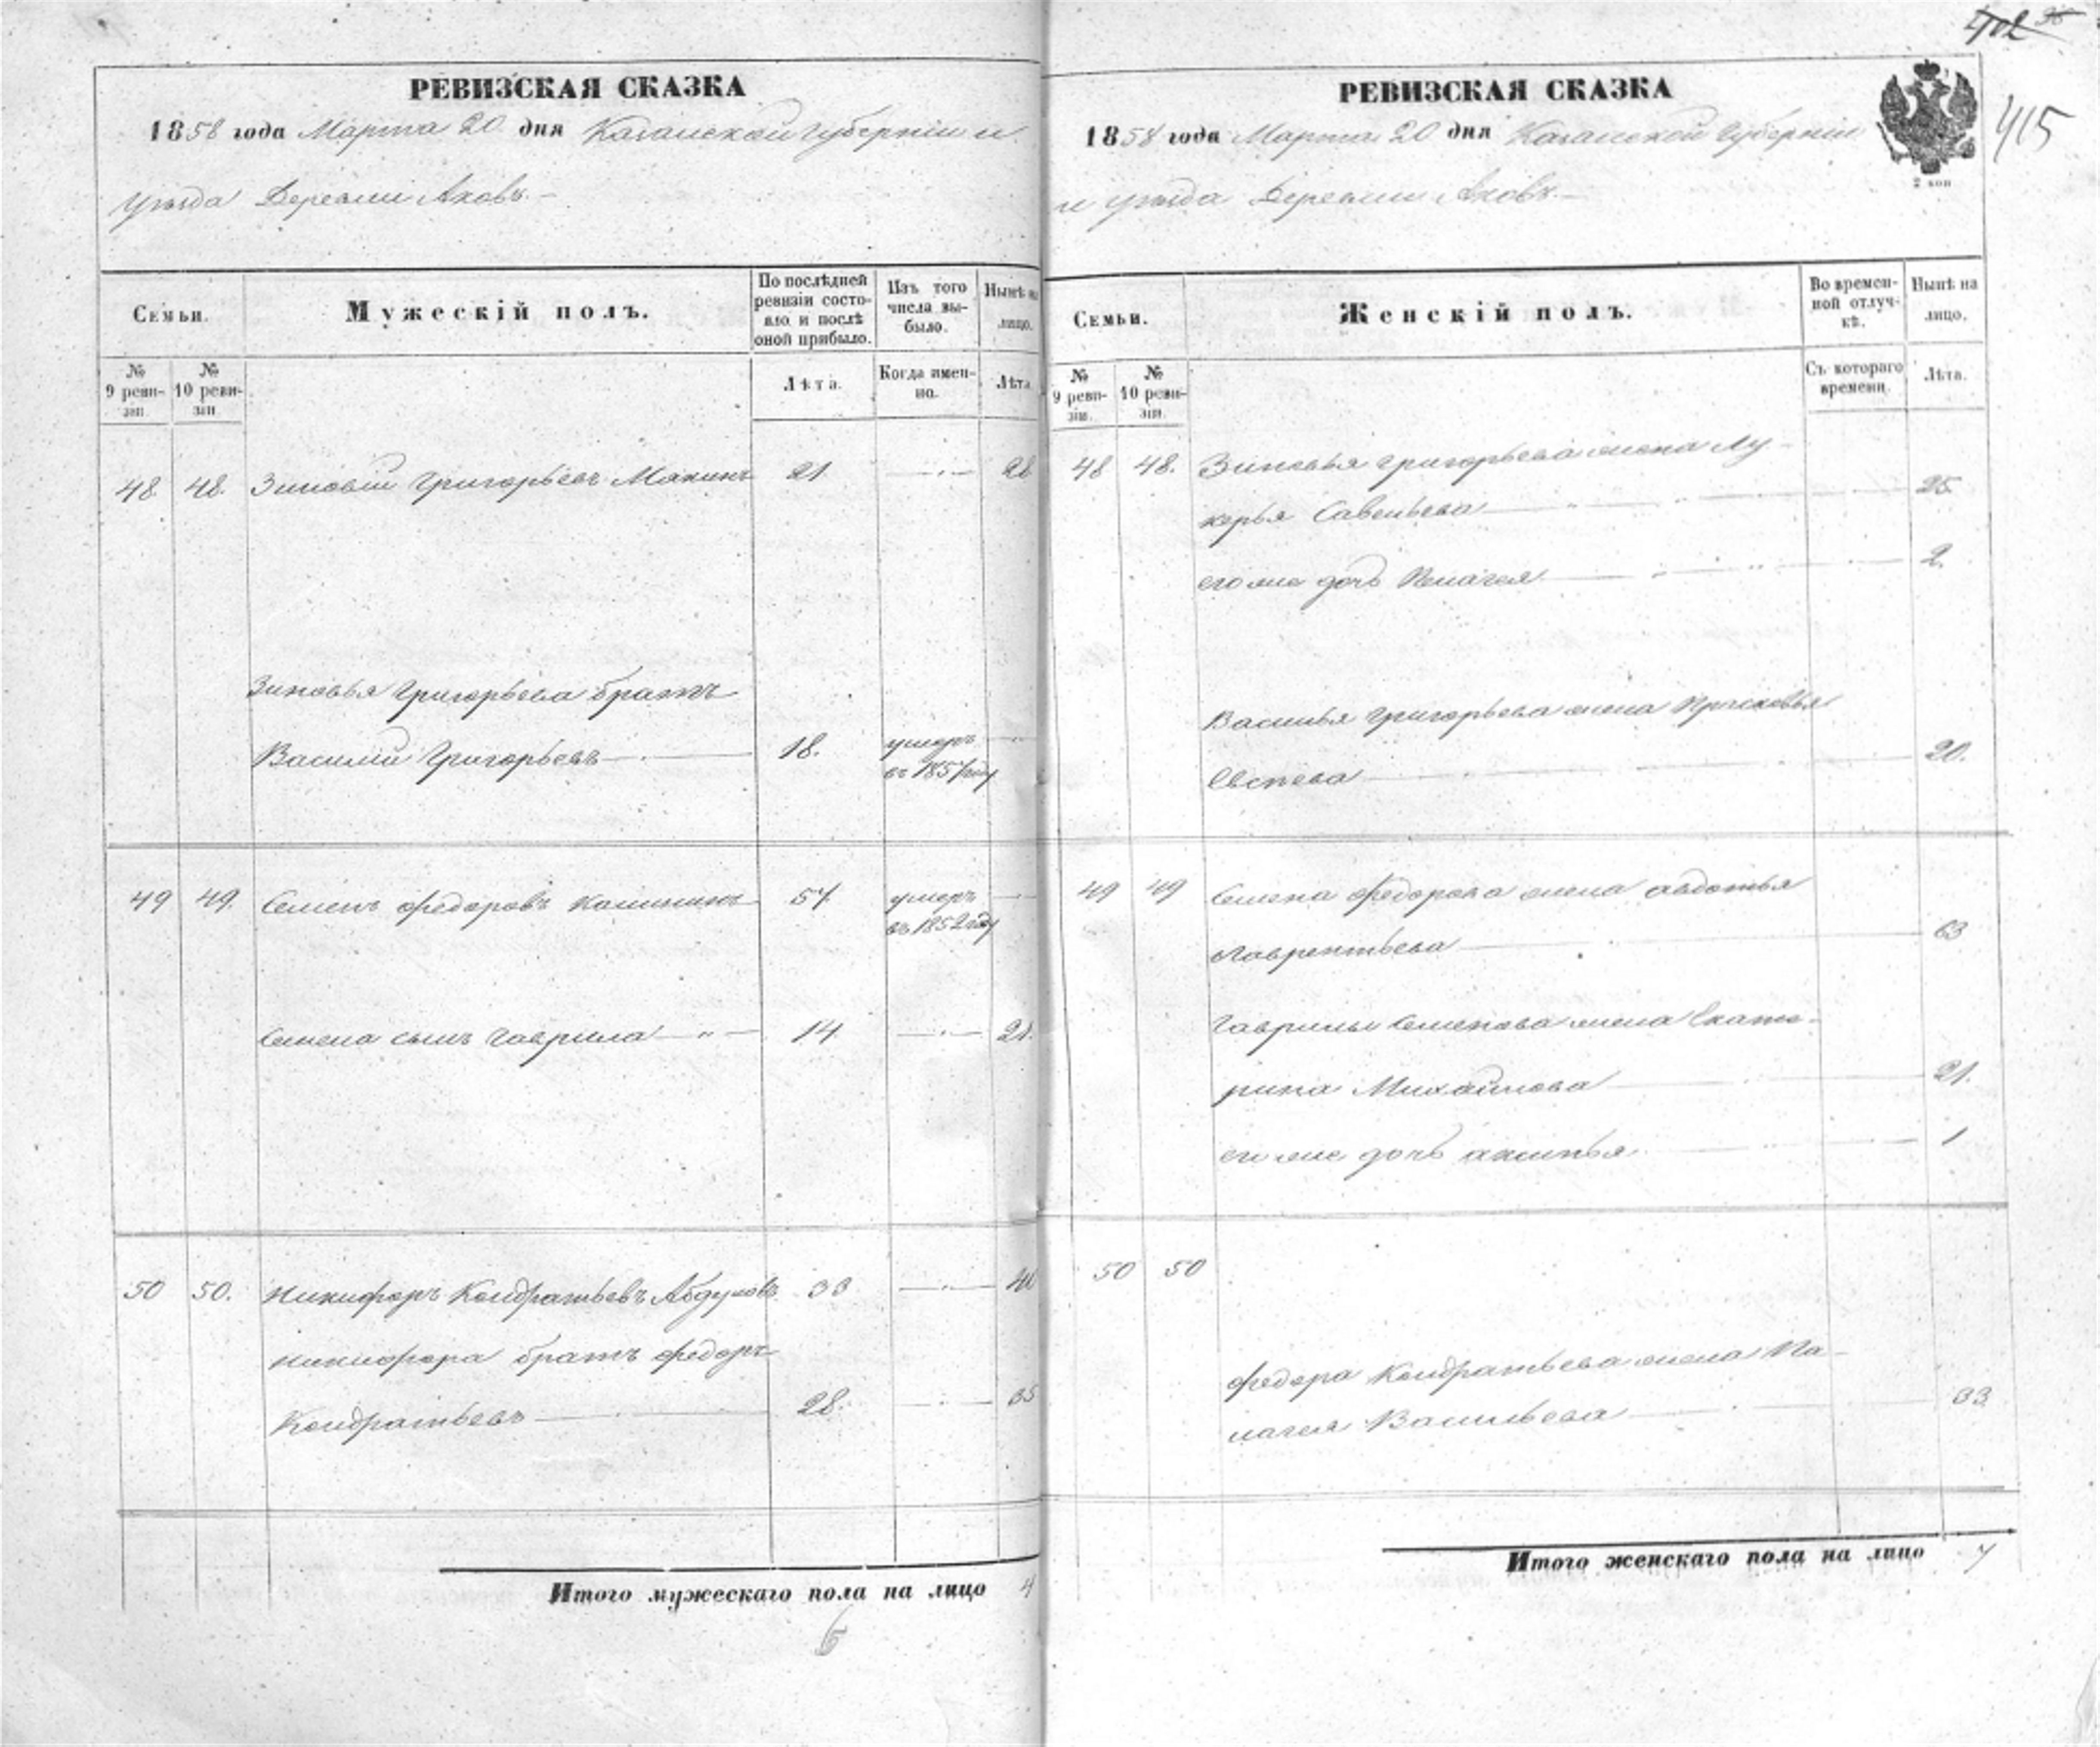 402 38
415
РЕВИЗСКАЯ СКАЗКА
1858 года Марта 20 дня Казанской Губернiи и
уѣзда Деревни Аковъ. –
Семьи.
Мужескiй полъ.
По послѣдней ревизiи состояло и послѣ оной прибыло.
Изъ того числа выбыло.
Нынѣ на лицо.
№ 9 ревизiи.
№ 10 ревизiи
Лѣта.
Когда именно.
Лѣта
48. 48. Зиновiй Григорьевъ Макинъ 21 28
Зиновья Григорьева братъ
Василiй Григорьевъ 18. умеръ въ 1857 году
49 49. Семенъ Федоровъ Калининъ 57. умеръ въ 1852 году
Семена сынъ Гаврила 14 21.
50 50. Никифоръ Кондратьевъ Абдуловъ 33 40
Никифора братъ Федоръ
Кондратьевъ 28. 35
Итого мужескаго пола на лицо 4
РЕВИЗСКАЯ СКАЗКА
1858 года Марта 20 дня Казанской Губернiи
и уѣзда Деревни Аковъ. –
2 коп
Семьи.
Женскiй полъ.
Во временной отлучкѣ.
Нынѣ на лицо.
№ 9 ревизiи.
№ 10 ревизiи.
Съ котораго времени.
Лѣта.
48 48. Зиновья Григорьева жена Лу-
керья Савельева 25
его же дочь Пелагея 2.
Василья Григорьева жена Прасковья
Евсѣева 20.
49 49 Семена Федорова жена Авдотья
Лаврентьева 63
Гаврилы Семенова жена Екате-
рина Михайлова 21.
его же дочь Аксинья 1
50 50
Федора Кондратьева жена Па-
лагея Васильева 33
Итого женскаго пола на лицо 7